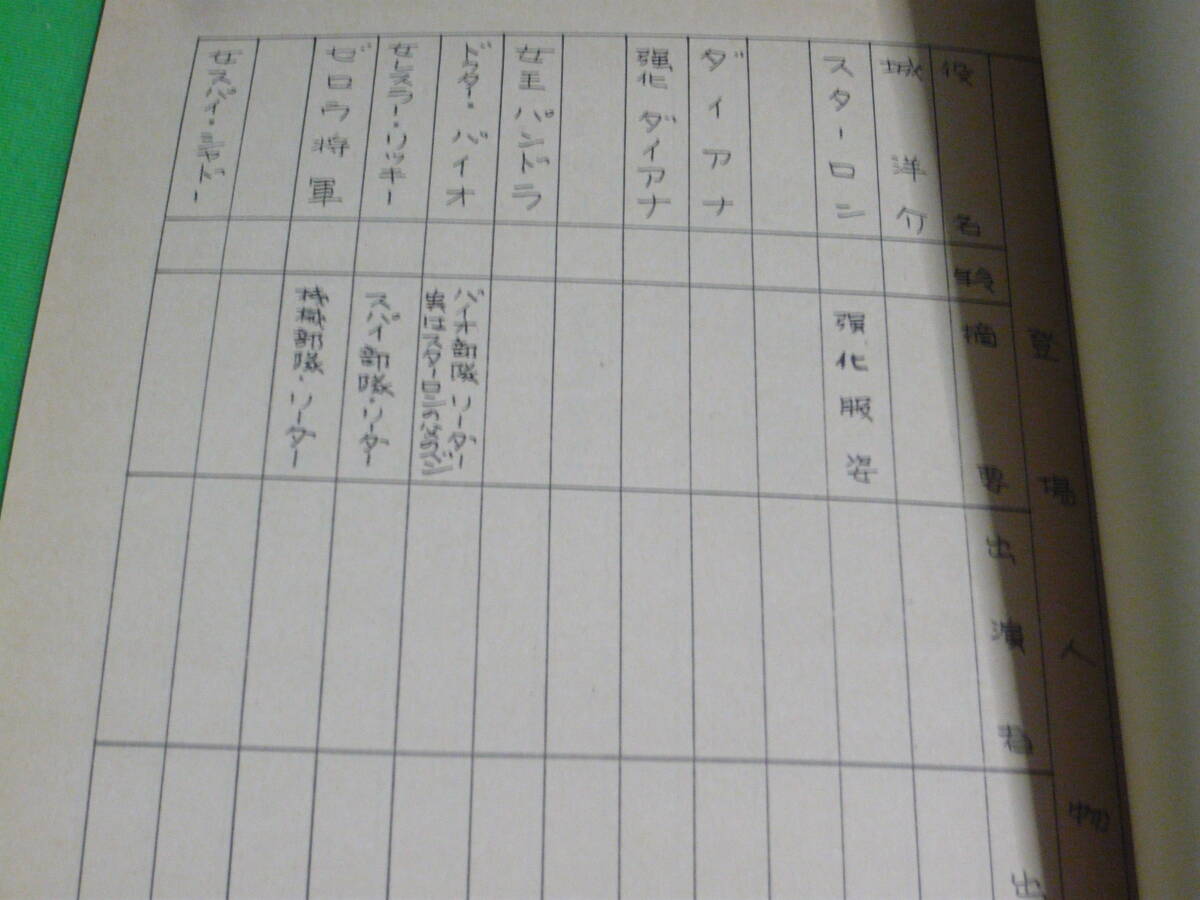 登場人物
役名
年令
摘要
出演者
出
城洋介
スターロン
強化服姿
ダイアナ
強化ダイアナ
女王パンドラ
ドクター・バイオ
バイオ部隊リーダー
実はスターロンの
女レスラー・リッキー
スパイ部隊・リーダー
ゼロウ将軍
機械部隊・リーダー
女スパイ・シャドー